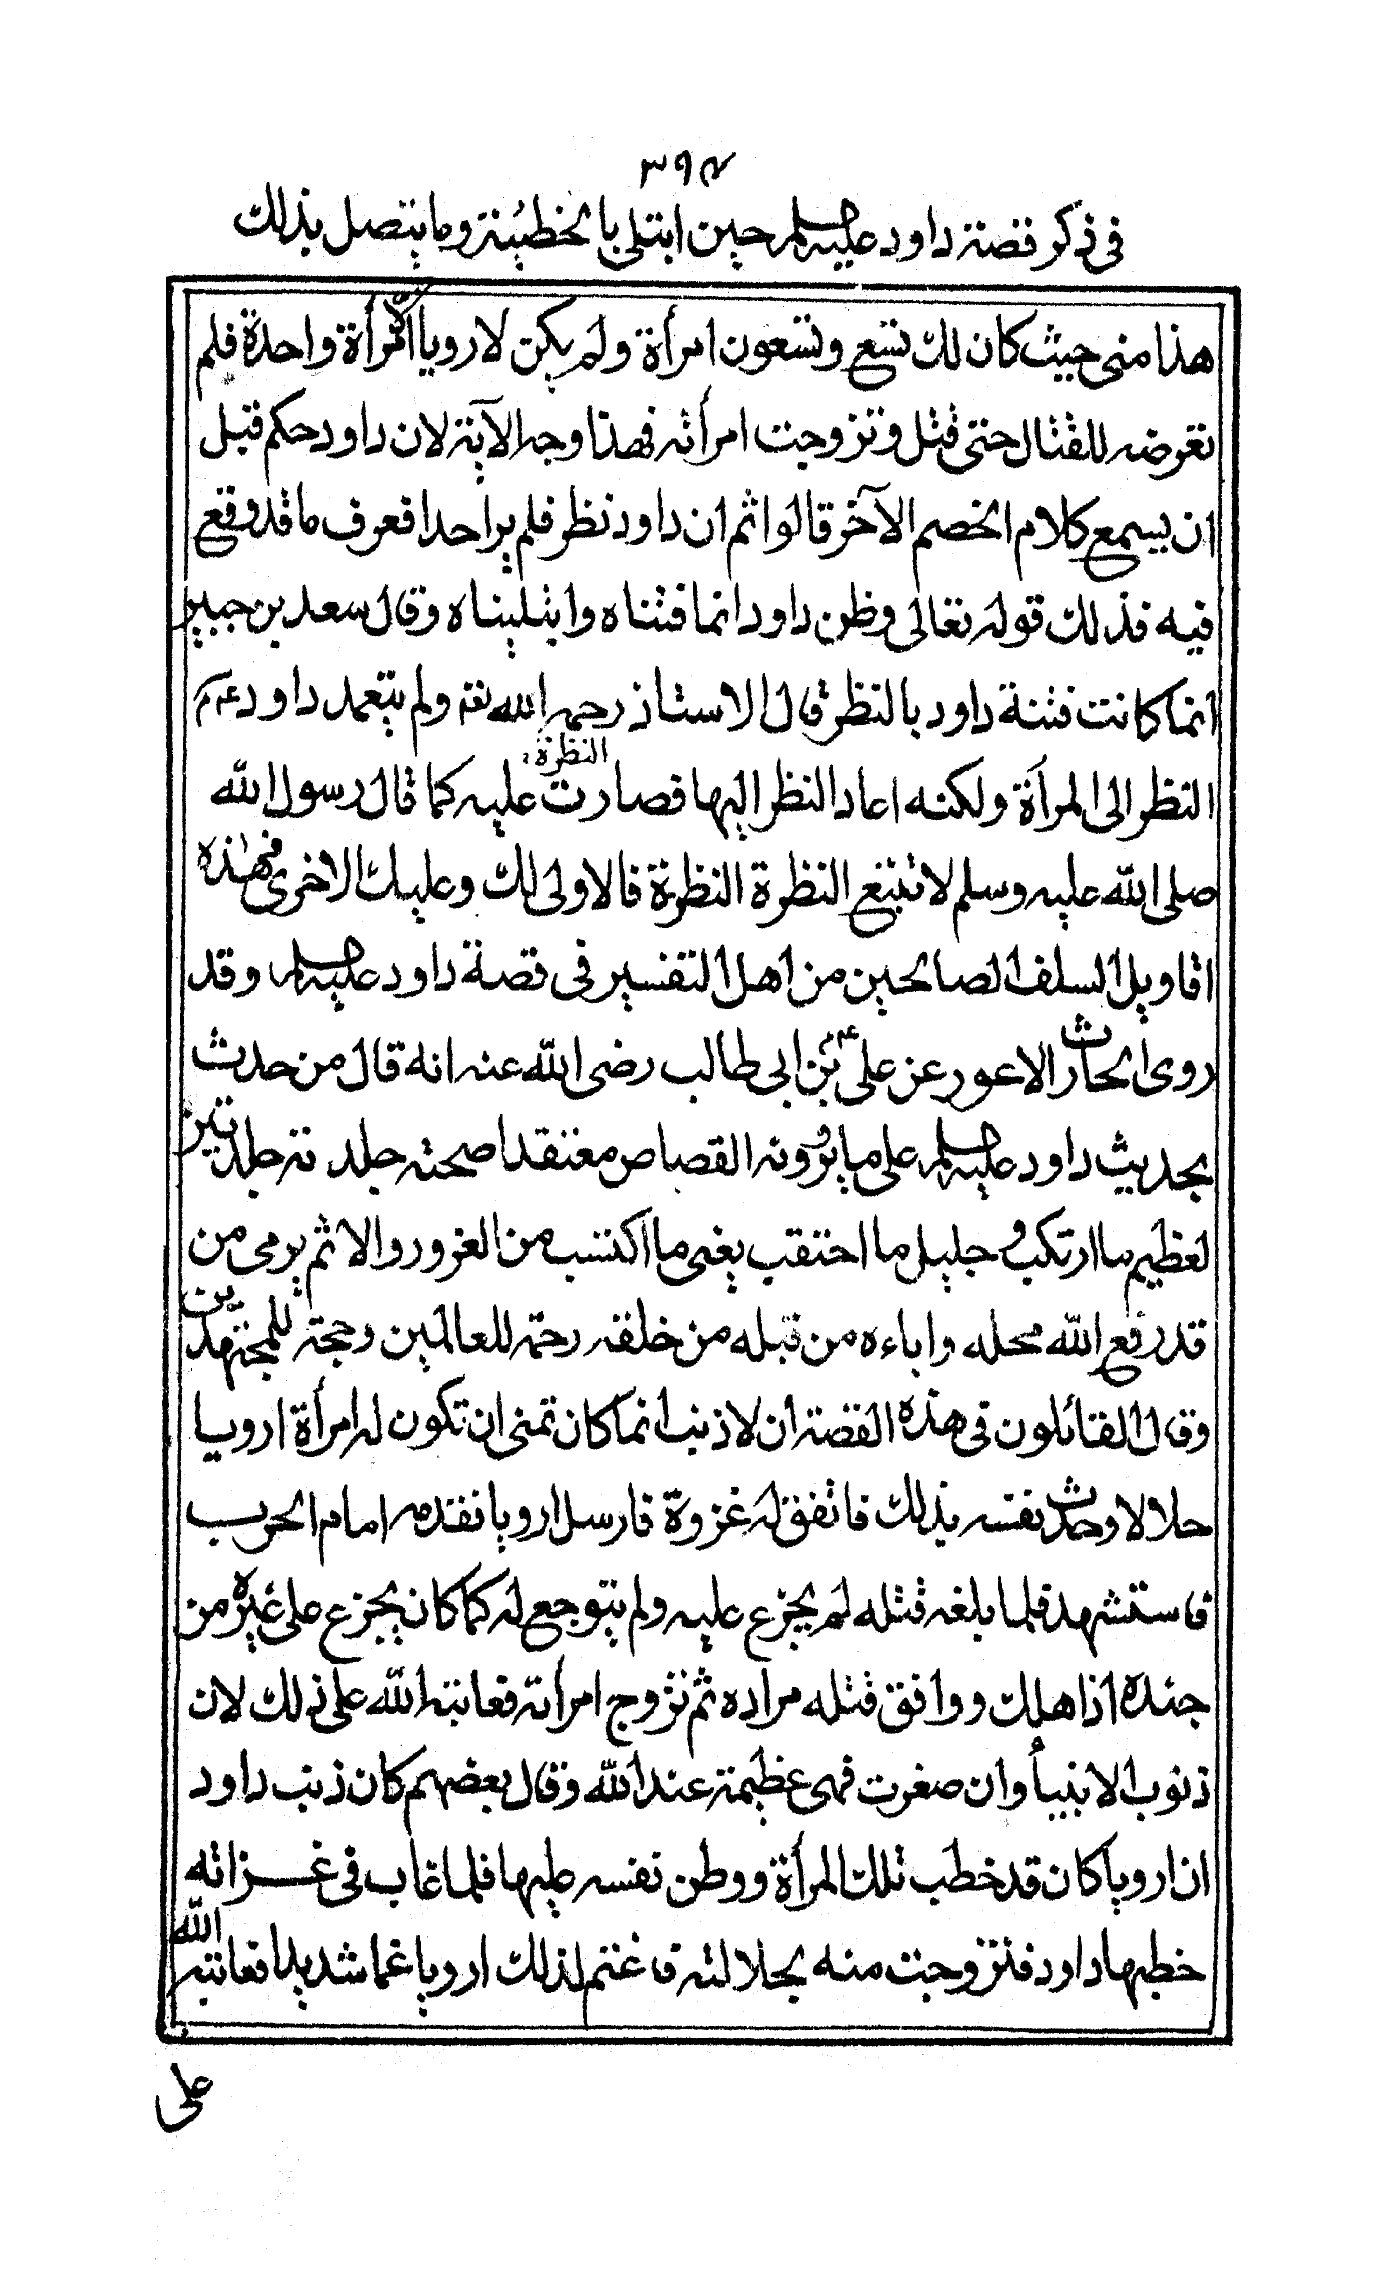 ٣٩٤
في ذكر قصة داود عليه السلم حين ابتلى بالخطيئة وما يتصل بذلك
هذا مني حيث كان لك تسع وتسعون امرأة ولم يكن لاروياا الا امرأة واحدة فلم
تعرضه للقتال حتى قتل وتزوجت امرأته فهذا وجه الآية لان داود حكم قبل
ان يسمع كلام الخصم الآخر قالوا ثم ان داود نظر فلم ير احدا فعرف ما قد وقع
فيه فذلك قوله تعالى وظن داود انما فتناه وابتليناه وقال سعد بن جبير
انما كانت فتنة داود بالنظر قال الاستاذ رحمه الله تعه ولم يتعمد داود عم
النظر الى المرأة ولكنه اعاد النظر اليها فصارت النظرة عليه كما قال رسول الله
صلى الله عليه وسلم لا تتبع النظرة النظرة فالاولى لك وعليك الاخرى فهذه
اقاويل السلف الصالحين من اهل التفسير في قصة داود عليه السلم وقد
روى الحارث الاعور عن على بن ابي طالب رضى الله عنه انه قال من حدث
بحديث داود عليه السلم على ما يرونه القصاص معتقدا صحته جلدته جلدتين
لعظيم ما ارتكب و جليل ما احتقب يعنى ما اكتسب من الغرور والاثم يرمى من
قد رفع الله محله واباءه من قبله من خلقه رحمة للعالمين وحجة للمجتهدين
وقال القائلون في هذه القصة ان لا ذنب انما كان تمنى ان تكون له امرأة ارويا
حلالا وحدث نفسه بذلك فاتفق له غزوة فارسل ارويا فقدمه امام الحرب
فاستشهد فلما بلغه قتله لم يجزع عليه ولم يتوجع له كما كان يجزع على غيره من
جنده اذا هلك ووافق قتله مراده ثم تزوج امرأته فعاتبه الله على ذلك لان
ذنوب الانبيأ وان صغرت فهى عظيمة عند الله وقال بعضهم كان ذنب داود
ان ارويا كان قد خطب تلك المرأة ووطن نفسه عليها فلما غاب في غزاته
خطبها داود فتزوجت منه بجلالته فاغتم لذلك ارويا غما شديدا فعاتبه الله
على